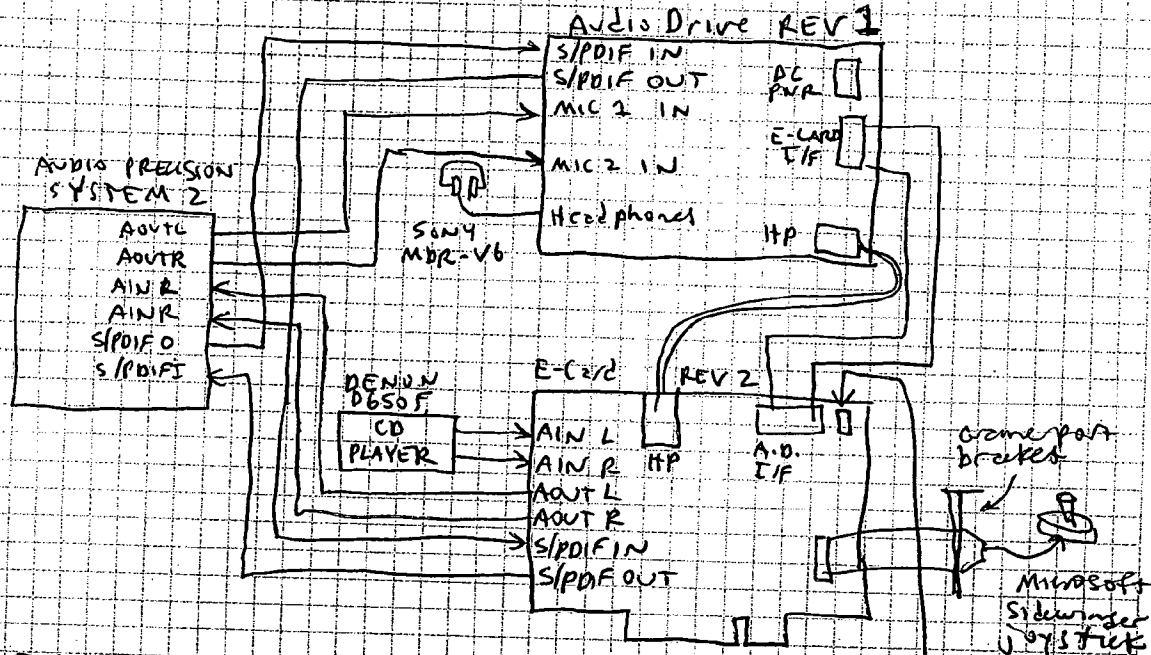 Audio Drive REV 1
S/PDIF IN
S/PDIF OUT
MIC 1 IN
MIC 2 IN
Headphones
DC
PWR
E-CARD
I/F
HP
AUDIO PRECISION
SYSTEM 2
AOUTL
AOUTR
AIN R
AINR
S/PDIF O
S/PDIFI
SONY
MDR-V6
DENON
D650F
CD
PLAYER
E-Card REV 2
AIN L
AIN R
AOUT L
AOUT R
S/PDIF IN
S/PDIF OUT
HP
A.D.
I/F
Gameport
bracket
Microsoft
Sidewinder
joystick